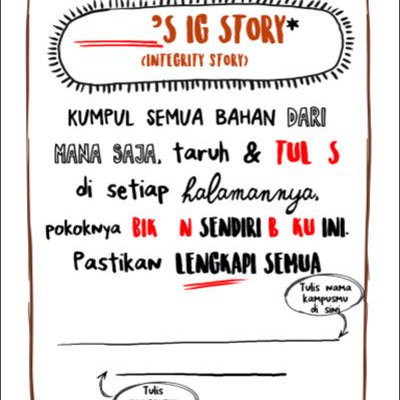 'S IG STORY*
(INTEGRITY STORY)
KUMPUL SEMUA BAHAN DARI
MANA SAJA, taruh & TUL S
di setiap halamannya,
pokoknya BIK N SENDIRI B KU INI.
Pastikan LENGKAPI SEMUA
Tulis nama
kampusmu
di sini
Tulis